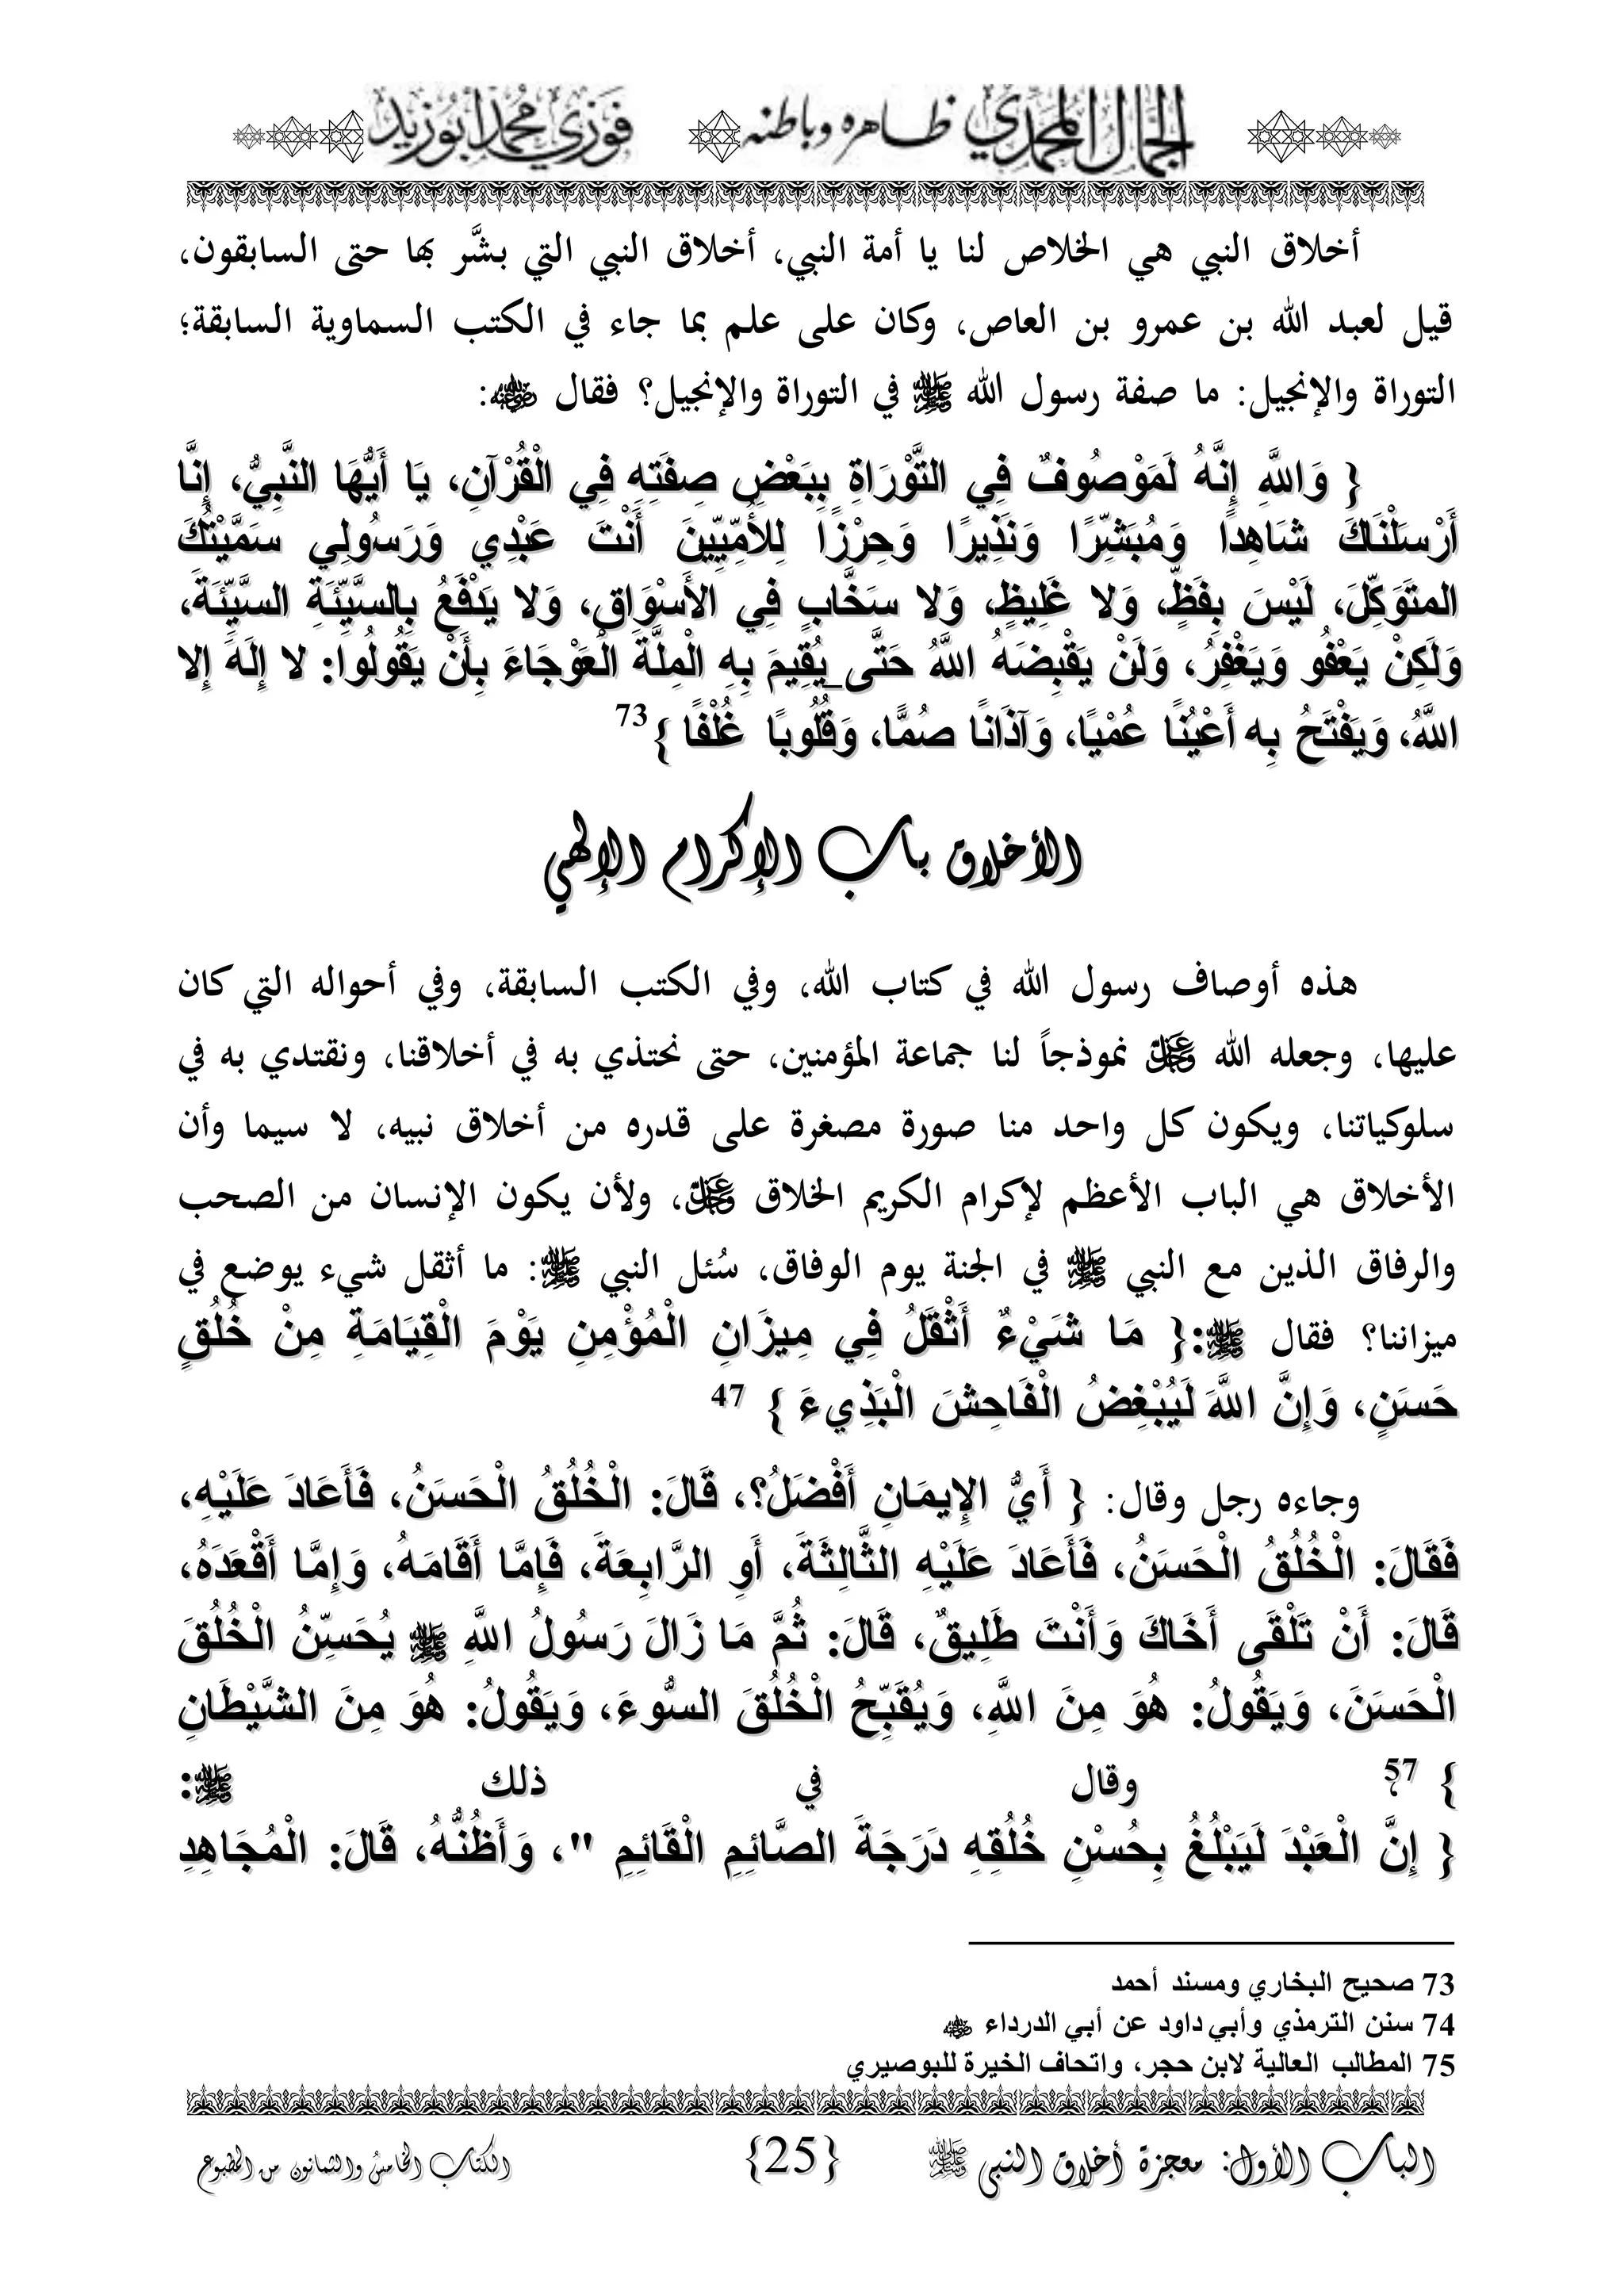 الجمال المحمدي ظاهره وباطنه فوزي محمد أبوزيد
أخلاق النبي هي الخلاص لنا يا أمة النبي، أخلاق النبي التي بشَّر بها حتى السابقون،
قيل لعبد الله بن عمرو بن العاص، وكان على علم بما جاء في الكتب السماوية السابقة؛
التوراة والإنجيل: ما صفة رسول الله ﷺ في التوراة والإنجيل؟ فقال :
{ وَاللَّهِ إِنَّهُ لَمَوْصُوفٌ فِي التَّوْرَاةِ بِبَعْضِ صِفَتِهِ فِي الْقُرْآنِ، يَا أَيُّهَا النَّبِيُّ، إِنَّا
أَرْسَلْنَاكَ شَاهِدًا وَمُبَشِّرًا وَنَذِيرًا وَحِرْزًا لِلأُمِّيِّينَ أَنْتَ عَبْدِي وَرَسُولِي سَمَّيْتُكَ
المتَوَكِّلَ، لَيْسَ بِفَظٍّ، وَلا غَلِيظٍ، وَلا سَخَّابٍ فِي الأَسْوَاقِ، وَلا يَدْفَعُ بِالسَّيِّئَةِ السَّيِّئَةَ،
وَلَكِنْ يَعْفُو وَيَغْفِرُ، وَلَنْ يَقْبِضَهُ اللَّهُ حَتَّى يُقِيمَ بِهِ الْمِلَّةَ الْعَوْجَاءَ بِأَنْ يَقُولُوا: لا إِلَهَ إِلا
اللَّهُ، وَيَفْتَحُ بِه أَعْيُنًا عُمْيًا، وَآذَانًا صُمًّا، وَقُلُوبًا غُلْفًا } 73
الأخلاق باب الإكرام الإلهي
هذه أوصاف رسول الله في كتاب الله، وفي الكتب السابقة، وفي أحواله التي كان
عليها، وجعله الله عزوجل نموذجاً لنا جماعة المؤمنين، حتى نحتذي به في أخلاقنا، ونقتدي به في
سلوكياتنا، ويكون كل واحد منا صورة مصغرة على قدره من أخلاق نبيه، لا سيما وأن
الأخلاق هي الباب الأعظم لإكرام الكريم الخلاق عزوجل، ولأن يكون الإنسان من الصحب
والرفاق الذين مع النبي ﷺ في الجنة يوم الوفاق، سُئل النبي ﷺ: ما أثقل شيء يوضع في
ميزاننا؟ فقال ﷺ:{ مَا شَيْءٌ أَثْقَلُ فِي مِيزَانِ الْمُؤْمِنِ يَوْمَ الْقِيَامَةِ مِنْ خُلُقٍ
حَسَنٍ، وَإِنَّ اللَّهَ لَيُبْغِضُ الْفَاحِشَ الْبَذِيءَ } 47
وجاءه رجل وقال: { أَيُّ الإِيمَانِ أَفْضَلُ؟، قَالَ: الْخُلُقُ الْحَسَنُ، فَأَعَادَ عَلَيْهِ،
فَقَالَ: الْخُلُقُ الْحَسَنُ، فَأَعَادَ عَلَيْهِ الثَّالِثَةَ، أَوِ الرَّابِعَةَ، فَإِمَّا أَقَامَهُ، وَإِمَّا أَقْعَدَهُ،
قَالَ: أَنْ تَلْقَى أَخَاكَ وَأَنْتَ طَلِيقٌ، قَالَ: ثُمَّ مَا زَالَ رَسُولُ اللَّهِ ﷺ يُحَسِّنُ الْخُلُقَ
الْحَسَنَ، وَيَقُولُ: هُوَ مِنَ اللَّهِ، وَيُقَبِّحُ الْخُلُقَ السُّوءَ، وَيَقُولُ: هُوَ مِنَ الشَّيْطَانِ
} 57؟ وقال في ذلك ﷺ:
{ إِنَّ الْعَبْدَ لَيَبْلُغُ بِحُسْنِ خُلُقِهِ دَرَجَةَ الصَّائِمِ الْقَائِمِ "، وَأَظُنُّهُ، قَالَ: الْمُجَاهِدِ
73 صحيح البخاري ومسند أحمد
74 سنن الترمذي وأبي داود عن أبي الدرداء
75 المطالب العالية لابن حجر، واتحاف الخيرة للبوصيري
الباب الأول: معجزة أخلاق النبى ﷺ {25} الكتاب الخامس والثمانون من المطبوع